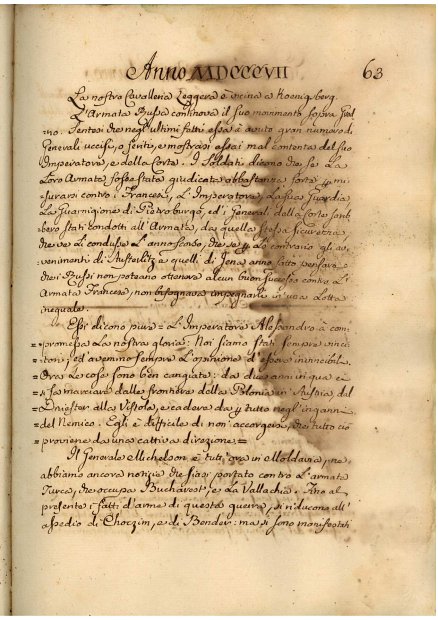 Anno MDCCCVII 63
La nostra Cavalleria Leggera è vicina a Koenigberg.
L'Armata Russa continova il suo movimento sopra Grod
=no. Sentesi che negl'ultimi fatti essa à avuto gran numero di
Generali uccisi, o feriti, e mostrasi assai mal contenta del suo
Imperatore, e della Corte. I Soldati dicono che se La
Loro Armata fosse stata giudicata abbastanza forte p mi
surarsi contro i Francesi, L'Imperatore, La sua Guardia
La Guarnigione di Pietroburgo, ed i Generali della Corte sareb
bero stati condotti all'Armata, da quella stessa sicurezza
che ve li condusse L'anno scorso, che se p lo contrario gli av
venimenti di Austerlitz e quelli di Jena anno fatto pensare
che i Russi non poteano ottenere alcun buon successo contro L'
Armata Francese, non bisognava impegnarli in una Lotta
ineguale.
Essi dicono pure = L'Imperatore Alessandro à com
promessa La nostra gloria: Noi siamo stati sempre vinci
tori; ed avemmo sempre L'opinione d'essere invincibili
Ora Le cose sono ben cangiate: da due anni in qua ci
si fa marciare dalle frontiere della Polonia in Austria, dal
Dniester alla Vistola, e cadere da p tutto negl'inganni
del Nemico. Egli è difficile di non accorgersi, che tutto ciò
proviene da una cattiva direzione =
Il Generale Michelson è tutt'ora in Moldavia, ne
abbiamo ancora notizia che siasi portato contro L'armata
Turca, che occupa Bucharest, e La Vallachia. Fino al
presente i fatti d'arme di questa guerra, si riducono all'
assedio di Choczim, e di Bender: ma si sono manifestati